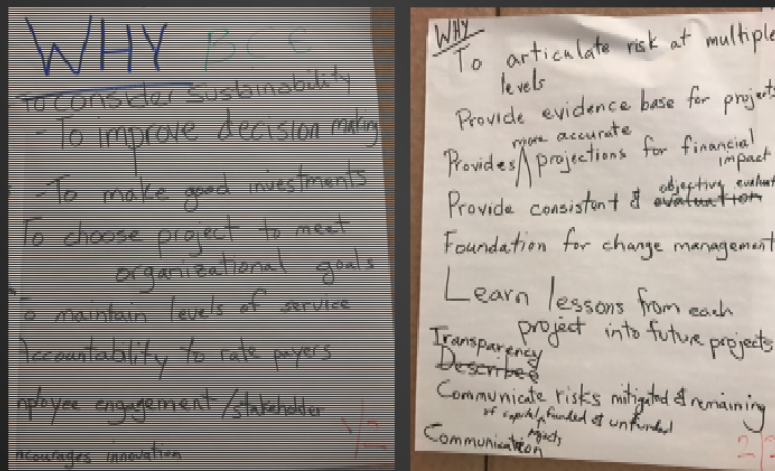 WHY BCE
To consider sustainability
- To improve decision making
- To make good investments
To choose project to meet
organizational goals
To maintain levels of service
Accountability to rate payers
mployee engagement / stakeholder
ncourages innovation
1/2
WHY
To articulate risk at multiple
levels
Provide evidence base for projects
more accurate
Provides ∧ projections for financial
impact
objective evaluat
Provide consistent & evaluation
Foundation for change management
Learn lessons from each
project into future projects
Transparency
Described
Communicate risks mitigated & remaining
of capital funded & unfunded
projects
Communication
2/2